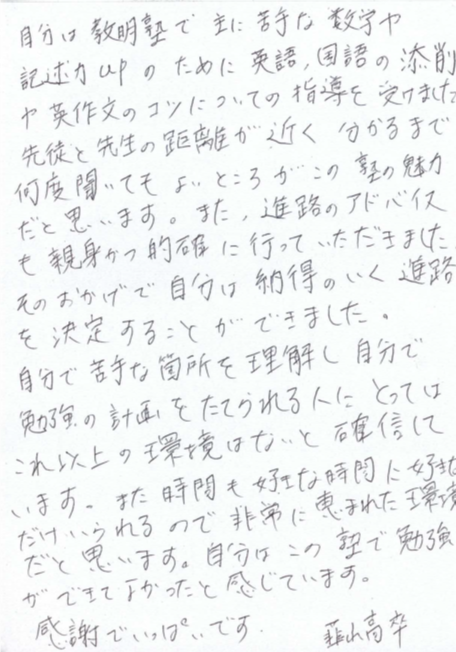 自分は教明塾で主に苦手な数学や
記述力upのために英語,国語の添削
や英作文のコツについての指導を受けました
先徒と先生の距離が近く分かるまで
何度聞いてもよいところがこの塾の魅力
だと思います。また,進路のアドバイス
も親身かつ的確に行っていただきました。
そのおかげで自分は納得のいく進路
を決定することができました。
自分で苦手な箇所を理解し自分で
勉強の計画をたてられる人にとっては
これ以上の環境はないと確信して
います。また時間も好きな時間に好きな
だけいられるので非常に恵まれた環境
だと思います。自分はこの塾で勉強
ができてよかったと感じています。
感謝でいっぱいです. 韮山高卒